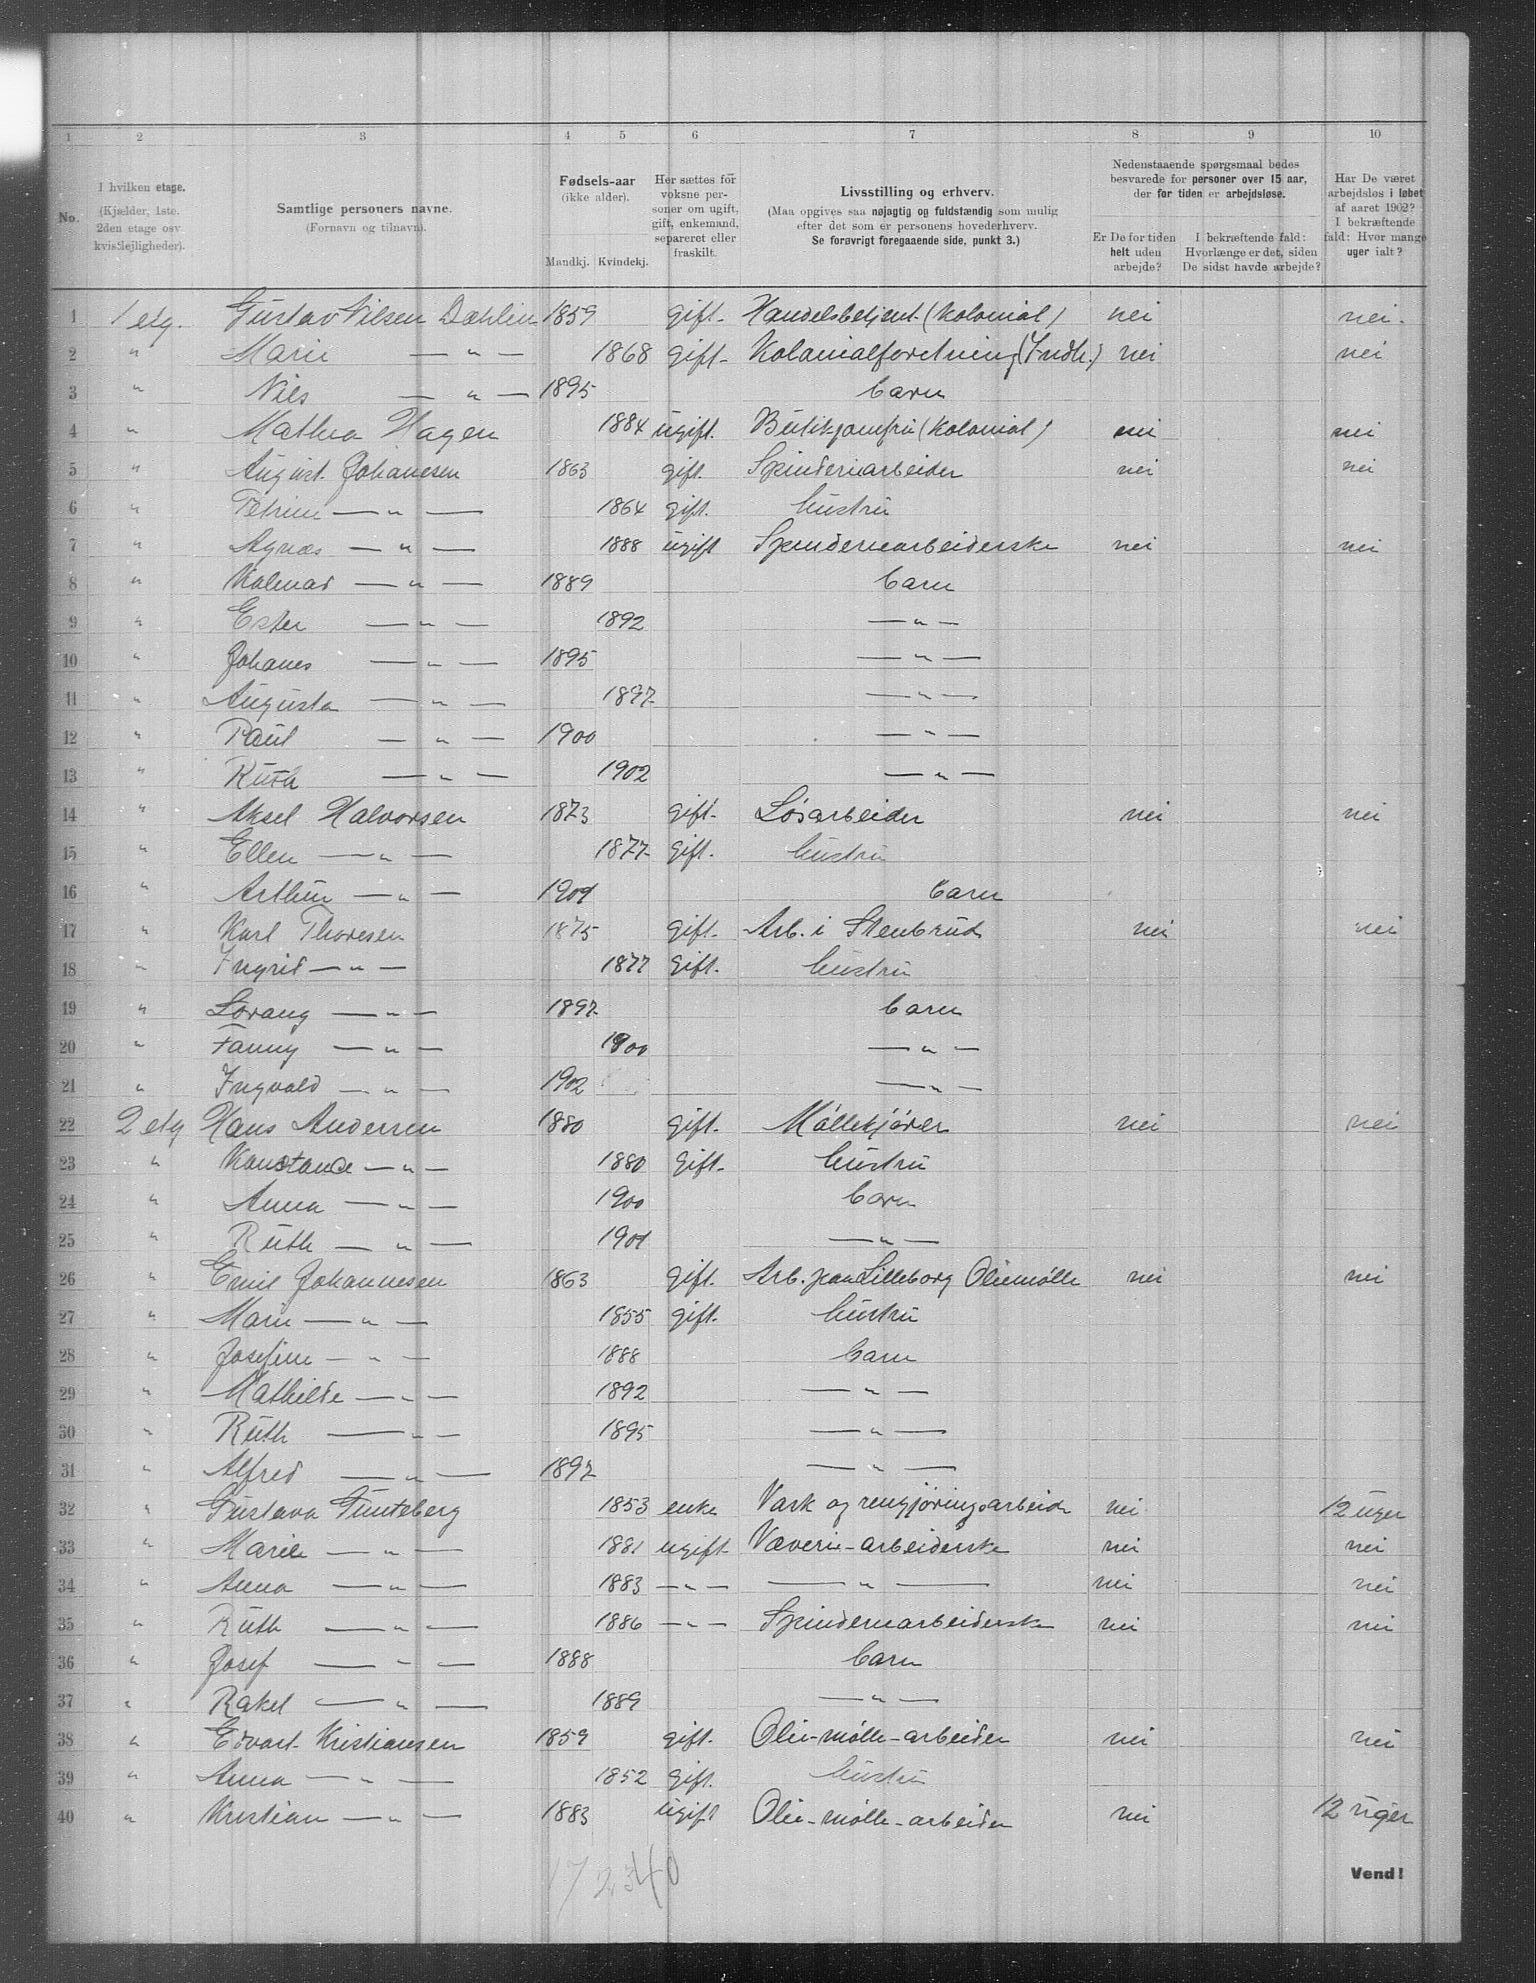 1 2 3 4 5 6 7 8 9 10
No.
I hvilken etage.
(Kjælder, 1ste.
2den etage osv.
kvistlejligheder).
Samtlige personers navne.
(Fornavn og tilnavn).
Fødsels-aar
(ikke alder).
Mandkj. Kvindekj.
Her sættes for
voksne per-
soner om ugift,
gift, enkemand,
separeret eller
fraskilt.
Livsstilling og erhverv.
(Maa opgives saa nøjagtig og fuldstændig som mulig
efter det som er personens hovederhverv.
Se forøvrigt foregaaende side, punkt 3.)
Nedenstaaende spørgsmaal bedes
besvarede for personer over 15 aar,
der for tiden er arbejdsløse.
Er De for tiden
helt uden
arbejde?
I bekræftende fald:
Hvorlænge er det, siden
De sidst havde arbejde?
Har De været
arbejdsløs i løbet
af aaret 1902?
I bekræftende
fald: Hvor mange
uger ialt?
1 1 etg. Gustav Nilsen Dahlin 1859 gift. Handelsbetjent (Kolonial) nei nei.
2 " Marie — " — 1868 gift. Kolonialforretning (Indh.) nei nei
3 " Nils — " — 1895 barn
4 " Mathea Hagen 1884 ugift. Butikjomfru (Kolonial) nei nei
5 " August Johanesen 1863 gift. Spinderiarbeider nei nei
6 " Petrine — " — 1864 gift. hustru
7 " Agnæs — " — 1888 ugift Spinderiearbeiderske nei nei
8 " Kolmar — " — 1889 barn
9 " Ester — " — 1892 — " —
10 " Johanes — " — 1895 — " —
11 " Augusta — " — 1897 — " —
12 " Paul — " — 1900 — " —
13 " Ruth — " — 1902 — " —
14 " Aksel Halvorsen 1873 gift. Løsarbeider nei nei
15 " Ellen — " — 1877 gift. hustru
16 " Arthur — " — 1901 barn
17 " Karl Thoresen 1875 gift. Arb. i Stenbrud nei nei
18 " Ingrid — " — 1877 gift. hustru
19 " Lorang — " — 1897 barn
20 " Fanny — " — 1900 — " —
21 " Ingvald — " — 1902 — " —
22 2 etg Hans Andersen 1880 gift. Møllekjører nei nei
23 " Konstance — " — 1880 gift. hustru
24 " Anna — " — 1900 barn
25 " Ruth — " — 1901 — " —
26 " Emil Johannesen 1863 gift. Arb. paa Lilleborg Oliemølle nei nei
27 " Marie — " — 1855 gift. hustru
28 " Josefine — " — 1888 barn
29 " Mathilde — " — 1892 — " —
30 " Ruth — " — 1895 — " —
31 " Alfred — " — 1897 — " —
32 " Gustava 1853 enke Vask og rengjøringsarbeide nei 12 uger
33 " Marie — " — 1881 ugift Væveri-arbeiderske nei nei
34 " Anna — " — 1883 — " — — " — nei nei
35 " Ruth — " — 1886 — " — Spinderiearbeiderske nei nei
36 " Josef — " — 1888 barn
37 " Rakel — " — 1889 — " —
38 " Edvart Kristiansen 1859 gift. Olie-mølle-arbeider nei nei
39 " Anna — " — 1852 gift. hustru
40 " Kristian — " — 1883 ugift Olie-mølle-arbeider nei 12 uger
17 23 40
Vend!